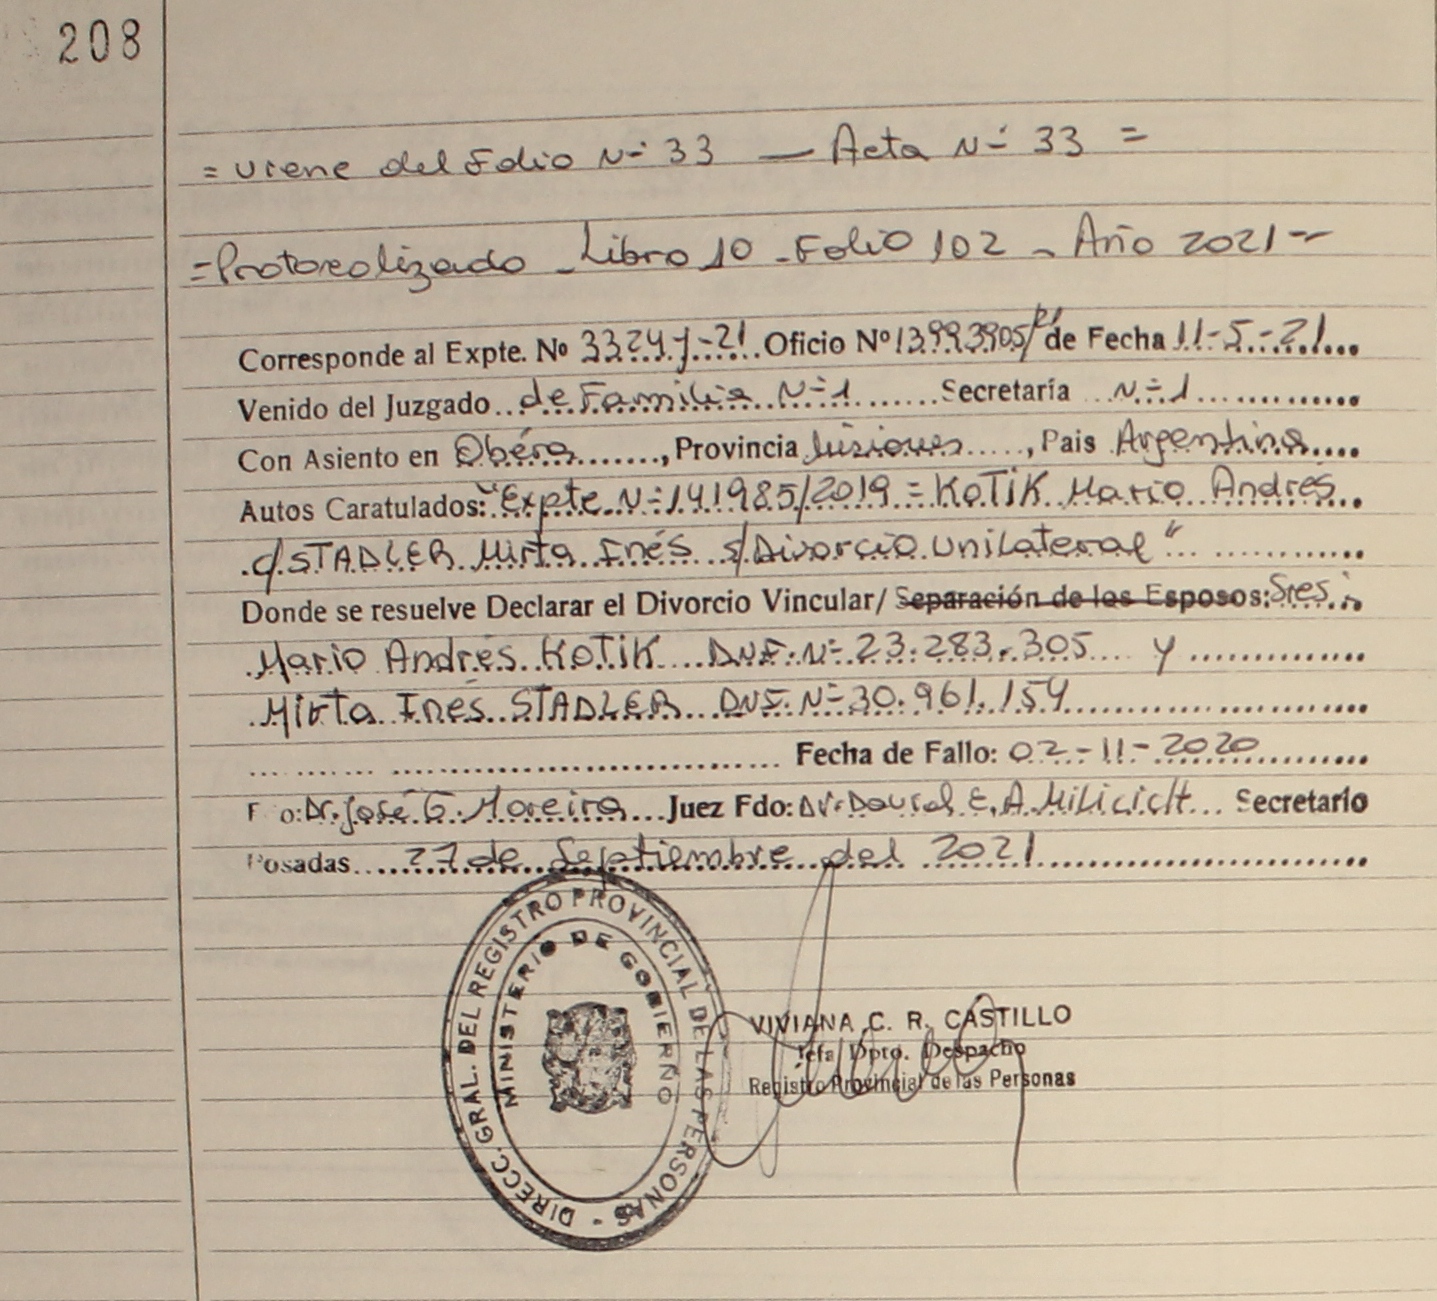 208
= viene del Folio N° 33 — Acta N° 33 =
= Protocolizado - Libro 10 - Folio 102 - Año 2021 -
Corresponde al Expte. No 3324-J-21 Oficio Nº 13993905/ de Fecha 11-5-21
Venido del Juzgado de Familia N°1 Secretaría N°1
Con Asiento en Oberá, Provincia Misiones, Pais Argentina
Autos Caratulados: "Expte N° 141985/2019 = KOTIK Mario Andrés
c/ STADLER Mirta Inés s/ Divorcio Unilateral"
Donde se resuelve Declarar el Divorcio Vincular/ Separación de los Esposos: Sres:
Mario Andrés KOTIK DNI. N° 23.283.305 y
Mirta Inés STADLER DNI. N° 30.961.154
Fecha de Fallo: 02-11-2020
F o: Dr. José G. Moreira Juez Fdo: Dr. E. A. Milicich Secretario
Posadas 27 de Septiembre del 2021
DIRECC. GRAL. DEL REGISTRO PROVINCIAL DE LAS PERSONAS -
MINISTERIO DE GOBIERNO
VIVIANA C. R. CASTILLO
Jefa Dpto. Despacho
Registro Provincial de las Personas